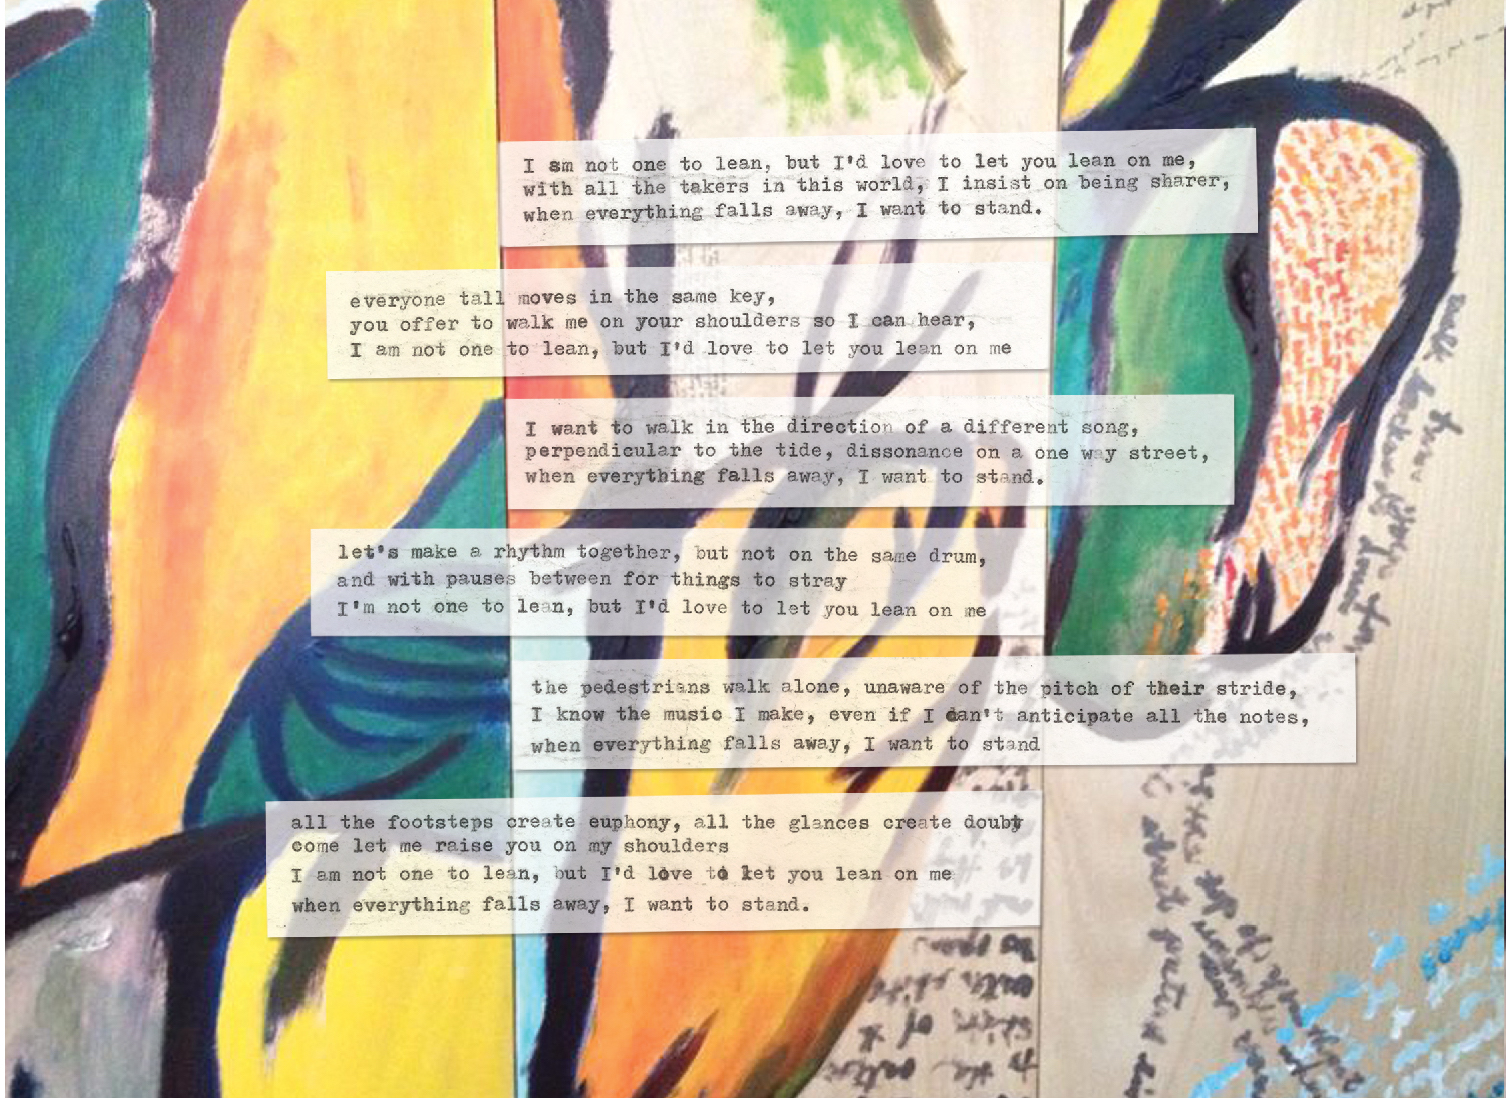 I am not one to lean, but I'd love to let you lean on me,
with all the takers in this world, I insist on being sharer,
when everything falls away, I want to stand.
everyone tall moves in the same key,
you offer to walk me on your shoulders so I can hear,
I am not one to lean, but I'd love to let you lean on me
I want to walk in the direction of a different song,
perpendicular to the tide, dissonance on a one way street,
when everything falls away, I want to stand.
let's make a rhythm together, but not on the same drum,
and with pauses between for things to stray
I'm not one to lean, but I'd love to let you lean on me
the pedestrians walk alone, unaware of the pitch of their stride,
I know the music I make, even if I can't anticipate all the notes,
when everything falls away, I want to stand
all the footsteps create euphony, all the glances create doubt
come let me raise you on my shoulders
I am not one to lean, but I'd love to let you lean on me
when everything falls away, I want to stand.